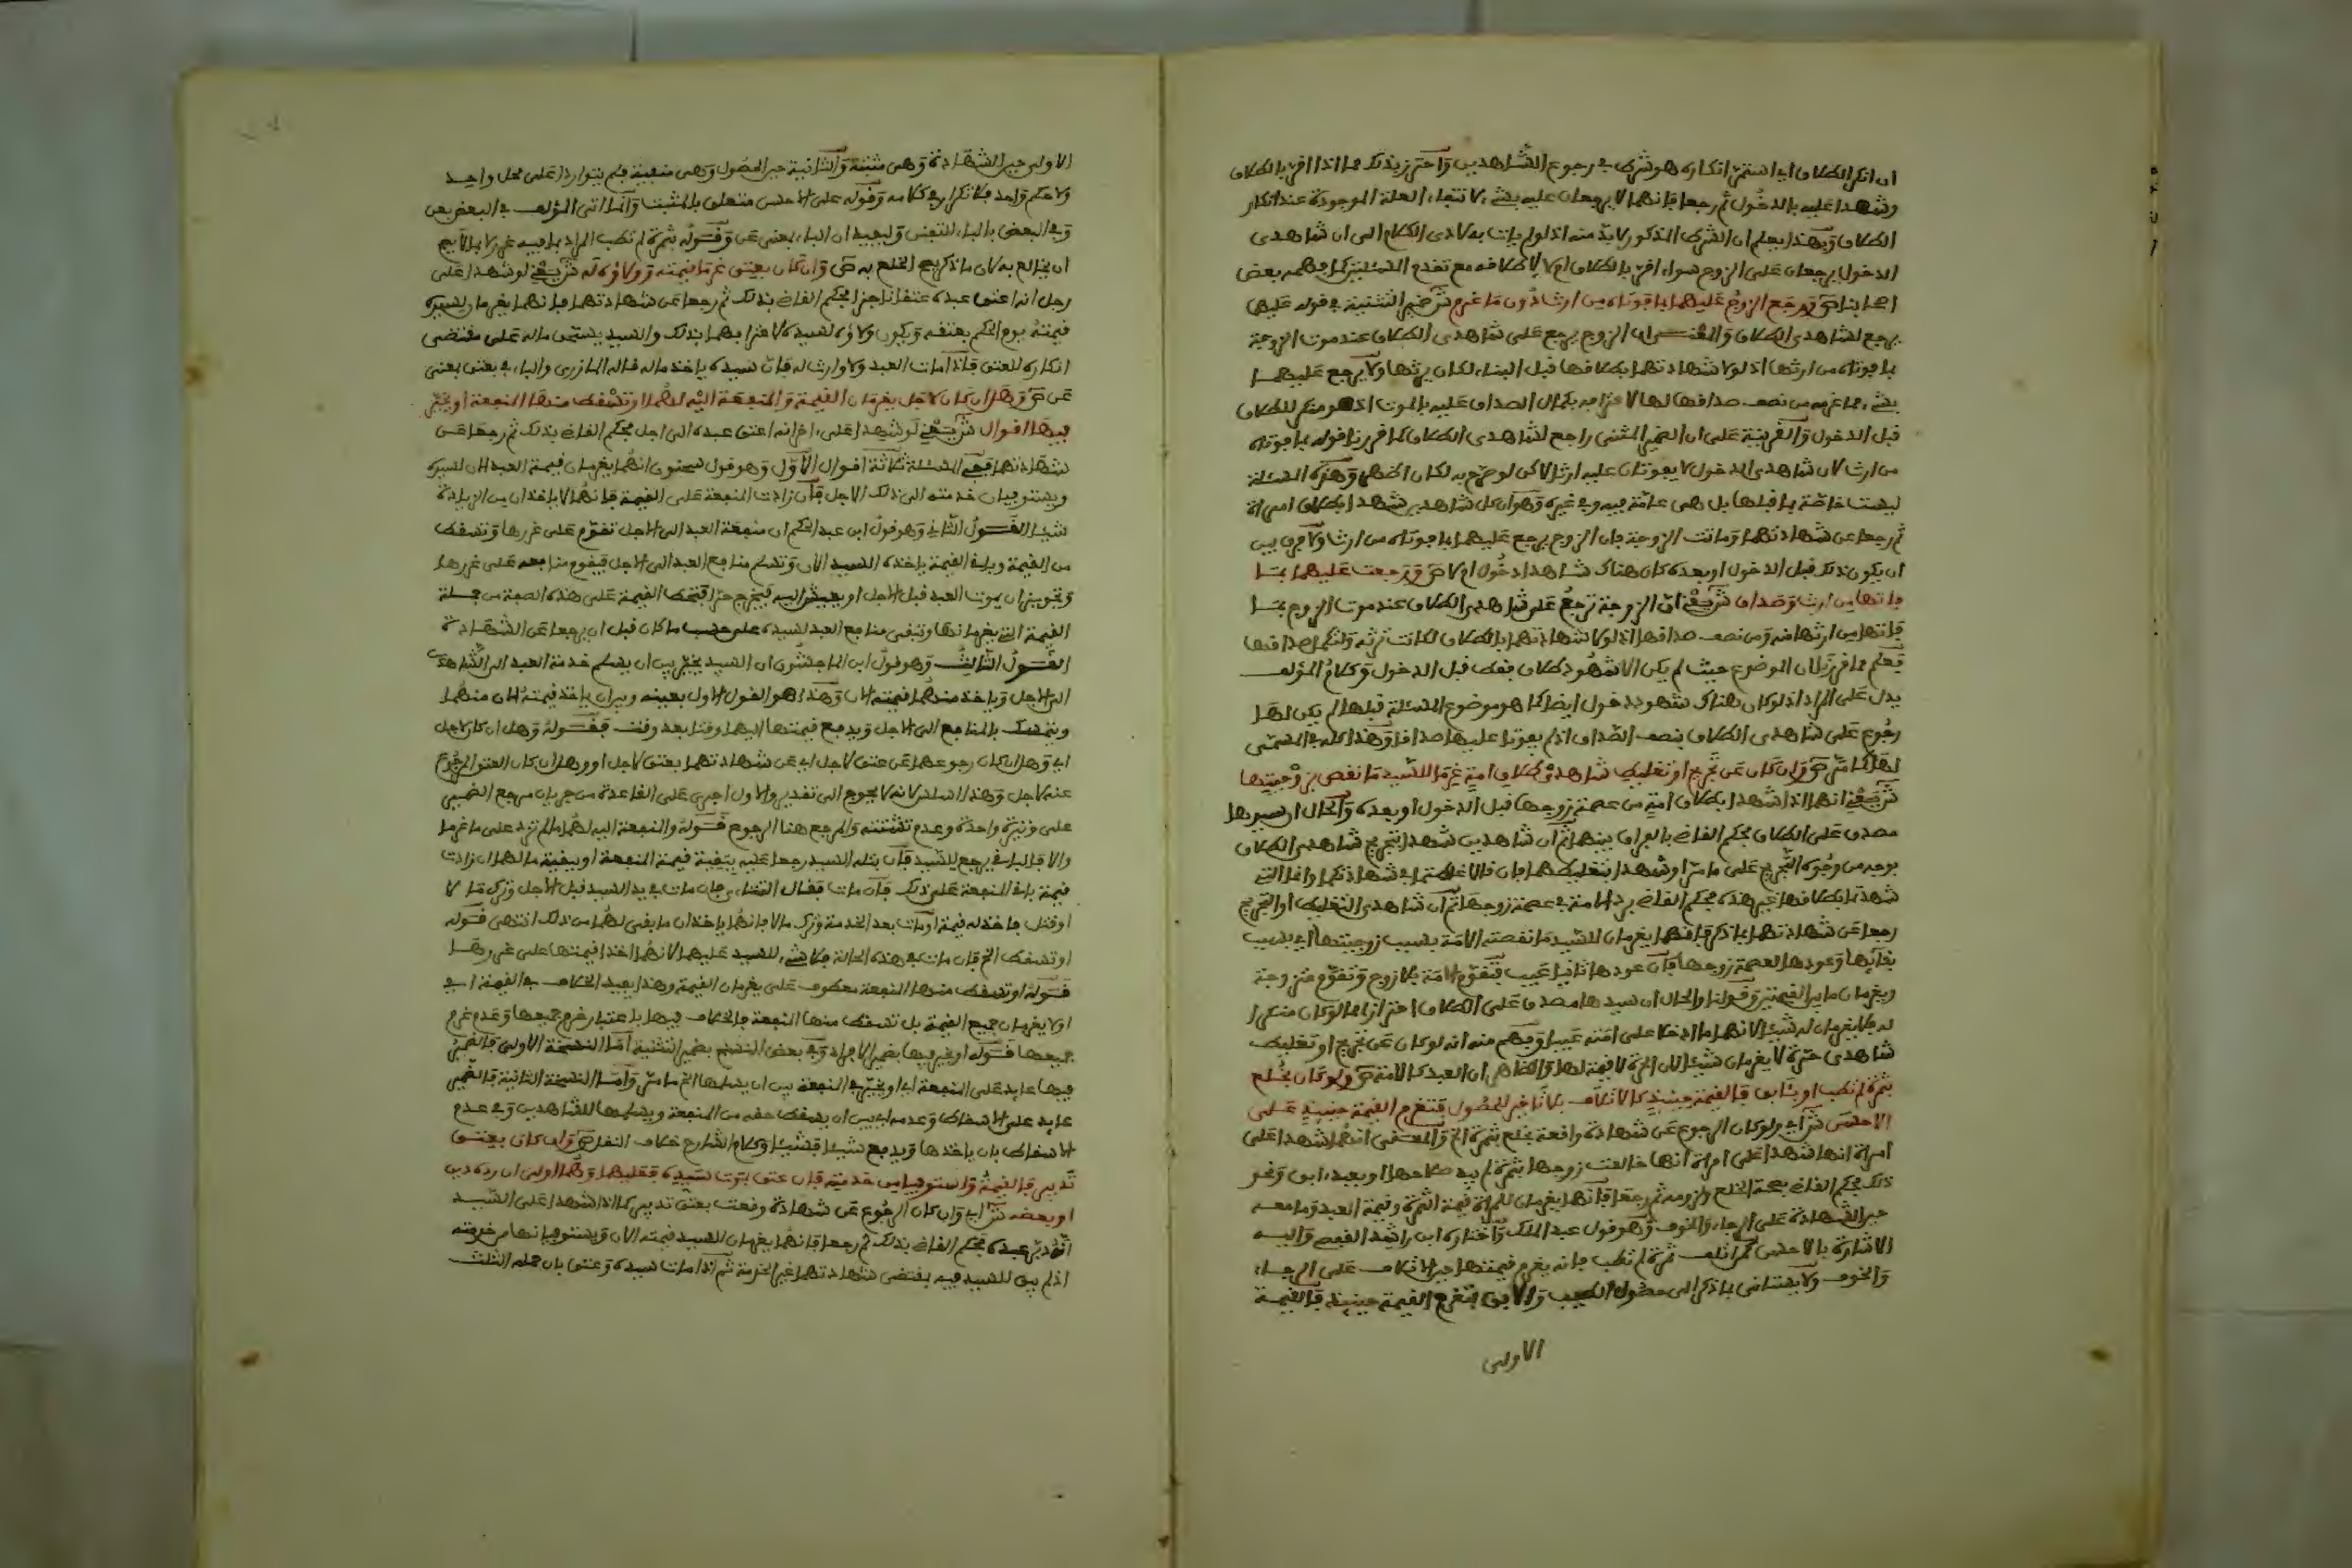 ان انكر الطلاق اي استمر انكاره هو شرط في رجوع الشاهدين واحترز بذلك مما اذا اقر بالطلاق
وشهدا عليه بالدخول ثم رجعا فانهما لا يرجعان عليه بشيء لانتفاء العلة الموجودة عند انكار
الطلاق وبهذا يعلم ان الشرط المذكور لا بد منه اذ لو لم يات به لادى الكلام الى ان شاهدي
الدخول يرجعان على الزوج سواء اقر بالطلاق ام لا
اصحابنا ص ورجع الزوج عليهما بما فوتاه من ارث دون ما غرم ش ضمير التثنية في قوله عليهما
يرجع لشاهدي الطلاق والمعنى ان الزوج يرجع على شاهدي الطلاق عند موت الزوجة
بما فوتاه من ارثها اذ لولا شهادتهما بطلاقها قبل البناء لكان يرثها ولا يرجع عليهما
بشيء مما غرمه من نصف صداقها لها لاعترافه بكمال الصداق عليه بالموت اذ هو منكر للطلاق
قبل الدخول والقرينة على ان الضمير المثنى راجع لشاهدي الطلاق كما قررنا قوله بما فوتاه
من ارث لان شاهدي الدخول لا يفوتان عليه ارثا لاكن لو صرح به لكان اظهر وهذه المسئلة
ليست خاصة بما قبلها بل هي عامة فيه وفي غيره وهو ان كل شاهدين شهدا بطلاق امراة
ثم رجعا عن شهادتهما وماتت الزوجة فان الزوج يرجع عليهما بما فوتاه من ارث ولا فرق بين
ان يكون ذلك قبل الدخول او بعده كان هناك شاهدا دخول ام لا ص ورجعت عليهما بما
فاتها من ارث وصداق ش يعني ان الزوجة ترجع على شاهدي الطلاق عند موت الزوج بما
فاتها من ارثها منه ومن نصف صداقها اذ لولا شهادتهما بالطلاق لكانت ترثه ولتكمل صداقها
فعلم مما قررنا ان الموضوع حيث لم يكن الا شهود طلاق فقط قبل الدخول وكلام المؤلف
يدل على المراد اذ لو كان هناك شهود دخول ايضا كما هو موضوع المسئلة قبلها لم يكن لها
رجوع على شاهدي الطلاق بنصف الصداق اذ لم يفوتا عليها صداقا وهذا كله في المسمى
لها كما مر ص وان كان عن تجريح او تغليط شاهدي طلاق امة غرما للسيد ما نقص بزوجيتها
ش يعني انهما اذا شهدا بطلاق امة من عصمة زوجها قبل الدخول او بعده والحال ان سيدها
مصدق على الطلاق فحكم القاضي بالفراق بينهما ثم ان شاهدين شهدا بتجريح شاهدي الطلاق
بوجه من وجوه التجريح على ما مر او شهدا بتغليطهما بان قالا غلطتما في شهادتكما وانما التي
شهدتما بطلاقها غير هذه فحكم القاضي برد الامة في عصمة زوجها ثم ان شاهدي التغليط او التجريح
رجعا عن شهادتهما بما ذكر فانهما يغرمان للسيد ما نقصته الامة بسبب زوجيتها اي بسبب
بقائها وعودها لعصمة زوجها فان عودها ثانيا عيب فتقوم الامة بلا زوج وتقوم متزوجة
ويغرمان ما بين القيمتين وقولنا والحال ان سيدها مصدق على الطلاق احترازا مما لو كان منكرا
له فلا يغرمان له شيئا لانهما ما ادخلا على امته عيبا وفهم منه انه لو كان عن تجريح او تغليط
شاهدي حرة لا يغرمان شيئا لان الحرة لا قيمة لها والظاهر ان العبد كالامة ص ولو كان بخلع
بثمرة لم تطب او بئابق فالقيمة حينئذ كالاتلاف بلا تاخير للحصول فتغرم القيمة حينئذ على
الاحسن ش اي ولو كان الرجوع عن شهادة واقعة بخلع بثمرة الخ والمعنى انهما شهدا على
امراة انها خالعت زوجها بثمرة لم يبد صلاحها او بعبد ءابق ونحو
ذلك فحكم القاضي بصحة الخلع ولزومه ثم رجعا فانهما يغرمان للمراة قيمة الثمرة وقيمة العبد وما معه
حين الشهادة على الرجاء والخوف وهو قول عبد الملك واختاره ابن راشد القفصي واليه
الاشارة بالاحسن كمن اتلف ثمرة لم تطب فانه يغرم قيمتها حين الاتلاف على الرجاء
والخوف ولا يستانى بما ذكر الى حصول الطيب والابق فتغرم القيمة حينئذ فالقيمة
الاولى
الاولى حين الشهادة وهي مثبتة والثانية حين الحصول وهي منفية فلم يتواردا على محل واحد
ولا حكم واحد فلا تكرار في كلامه وقوله على الاحسن متعلق بالمثبت وانما اتى المؤلف في البعض بعن
وفي البعض بالباء للتفنن وليفيد ان الباء بمعنى عن وقوله بثمرة لم تطب المراد بما فيه غرر لا بما لا يصح
ان يخالع به لان ما ذكر يصح الخلع به ص وان كان بعتق غرما قيمته وولاؤه له ش يعني لو شهدا على
رجل انه اعتق عبده عتقا ناجزا فحكم القاضي بذلك ثم رجعا عن شهادتهما فانهما يغرمان لسيده
قيمته يوم الحكم بعتقه ويكون ولاؤه لسيده لاعترافهما بذلك والسيد يستحق ماله على مقتضى
انكاره للعتق فاذا مات العبد ولا وارث له فان سيده ياخذ ماله قاله المازري والباء في بعتق بمعنى
عن ص وهل ان كان لاجل يغرمان القيمة والمنفعة اليه لهما او تسقط منها المنفعة او يخير
فيها اقوال ش يعني لو شهدا على اخر انه اعتق عبده الى اجل فحكم القاضي بذلك ثم رجعا عن
شهادتهما ففي المسئلة ثلاثة اقوال الاول وهو قول سحنون انهما يغرمان قيمة العبد الان لسيده
ويستوفيان خدمته الى ذلك الاجل فان زادت المنفعة على القيمة فانهما لا ياخذان من الزيادة
شيئا القول الثاني وهو قول ابن عبد الحكم ان منفعة العبد الى الاجل تقوم على غررها وتسقط
من القيمة وباقي القيمة ياخذه السيد الان وتسلم منافع العبد الى الاجل فيقوم منافعه على غررها
وتجويز ان يموت العبد قبل الاجل او يعيش اليه فيخرج حرا فتحط القيمة على هذه الصفة من جملة
القيمة التي يغرمانها وتبقى منافع العبد لسيده على حسب ما كان قبل ان يرجعا عن الشهادة
القول الثالث وهو قول ابن الماجشون ان السيد يخير بين ان يسلم خدمة العبد الى الشاهدين
الى الاجل وياخذ منهما قيمته الان وهذا هو القول الاول بعينه وبين ان ياخذ قيمته الان منهما
ويتمسك بالمنافع الى الاجل ويدفع قيمتها اليهما وقتا بعد وقت فقوله وهل ان كان لاجل
اي وهل ان كان رجوعهما عن عتق لاجل اي عن شهادتهما بعتق لاجل او وهل ان كان العتق المرجوع
عنه لاجل وهذا اسلس لانه لا يحوج الى تقدير والاول اجرى على القاعدة من جريان مرجع الضمير
على وتيرة واحدة وعدم تشتته والمرجع هنا الرجوع قوله والمنفعة اليه لهما ما لم تزد على ما غرما
والا فالباقي يرجع للسيد فان قتله السيد رجعا عليه ببقية قيمة المنفعة او ببقية ما لهما ان زادت
قيمة باقي المنفعة على ذلك فان مات فقال التتائي فان مات في يد السيد قبل الاجل وترك مالا
او قتل فاخذ له قيمة او مات بعد الخدمة وترك مالا فانهما ياخذان ما بقي لهما من ذلك انتهى قوله
او تسقط الخ فان مات في هذه الحالة فلا شيء للسيد عليهما لانهما اخذا قيمتها على غررها
قوله او تسقط منها المنفعة معطوف على يغرمان القيمة وهذا يفيد الخلاف في القيمة اي
او لا يغرمان جميع القيمة بل تسقط منها المنفعة فالخلاف فيها باعتبار غرم جميعها وعدم غرم
جميعها قوله او يخير فيها بضمير الافراد وفي بعض النسخ بضمير التثنية اما النسخة الاولى فالضمير
فيها عايد على المنفعة اي او يخير في المنفعة بين ان يسلمها الخ ما مر واما النسخة الثانية فالضمير
عايد على الاسقاط وعدمه اي بين ان يسقط حقه من المنفعة ويسلمها للشاهدين وفي عدم
الاسقاط بان ياخذها ويدفع شيئا فشيئا وكلام الشارح خلاف النقل ص وان كان بعتق
تدبير فالقيمة واستوفيا من خدمته فان عتق بموت سيده فعليهما وهما اولى ان رده دين
او بعضه ش اي وان كان الرجوع عن شهادة وقعت بعتق تدبير كما اذا شهدا على السيد
انه دبر عبده فحكم القاضي بذلك ثم رجعا فانهما يغرمان للسيد قيمته الان ويستوفيانها من خدمته
اذ لم يبق للسيد فيه بمقتضى شهادتهما غير الخدمة ثم اذا مات سيده وعتق بان حمله الثلث